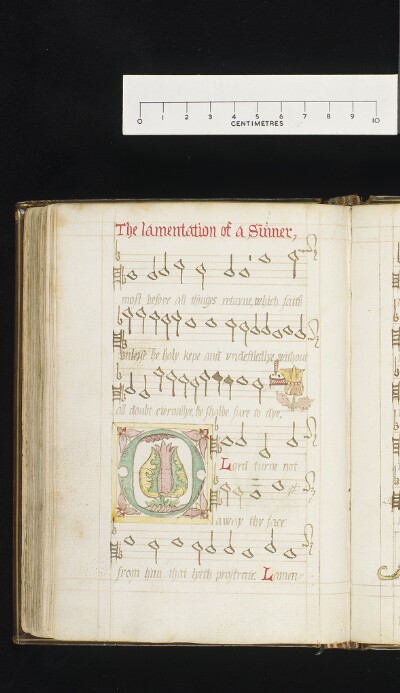 0 1 2 3 4 5 6 7 8 9 10
CENTIMETRES
The lamentation of a Sinner,
most before all thinges retayne, which faith
unlesse he holy kepe and undefiledlye, without
all doubt eternallye, he shalbe sure to dye.
O
Lord turne not
away thy face
from him that lyeth prostrate. Lamen-